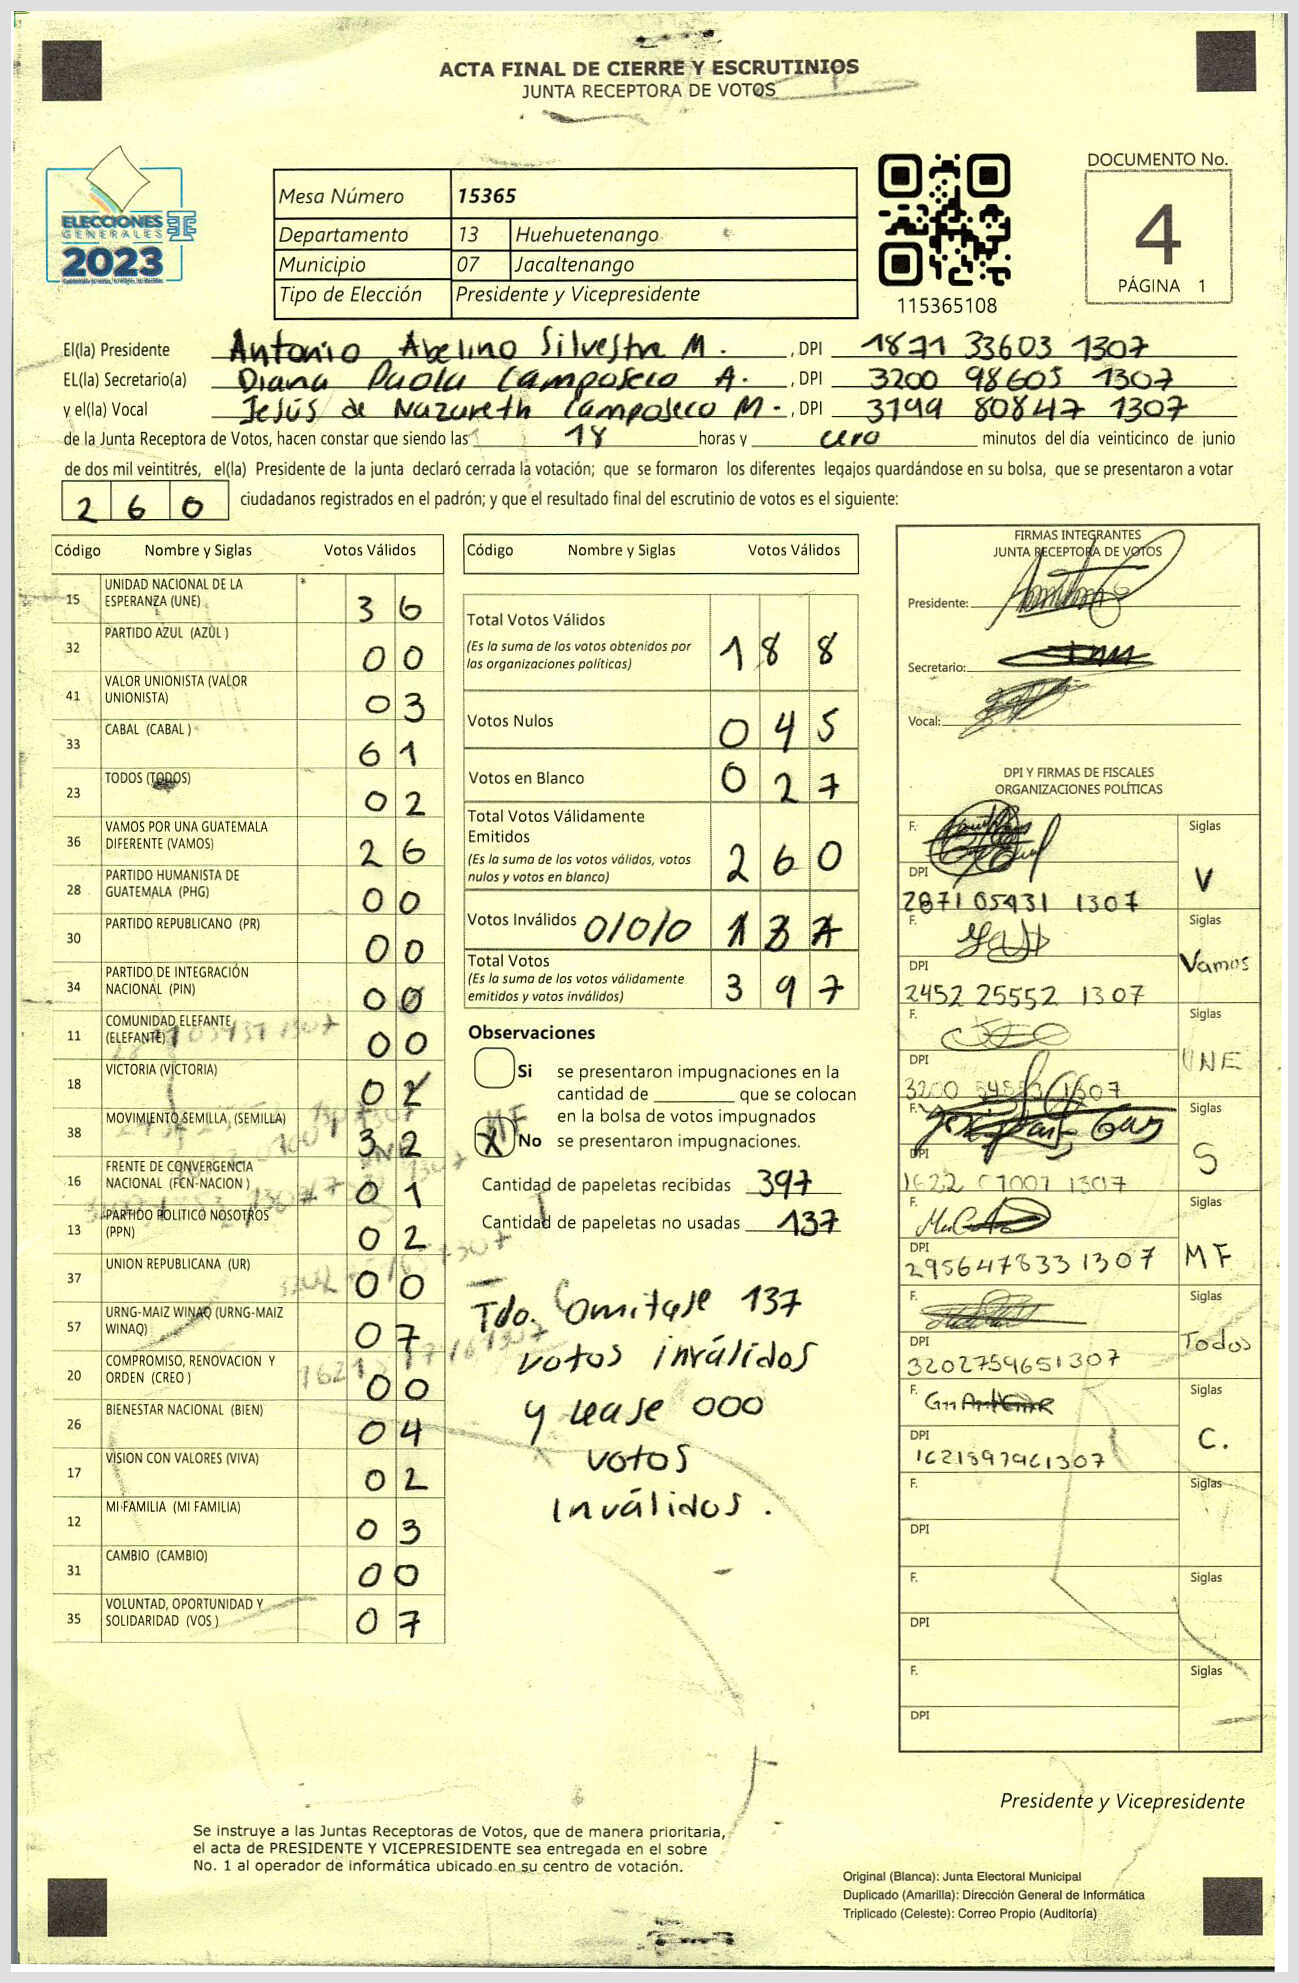 ACTA FINAL DE CIERRE Y ESCRUTINIOS
JUNTA RECEPTORA DE VOTOS
ELECCIONES
GENERALES
2023
Mesa Número 15365
Departamento 13 Huehuetenango
Municipio 07 Jacaltenango
Tipo de Elección Presidente y Vicepresidente
115365108
DOCUMENTO No.
4
PÁGINA 1
El(la) Presidente Antonio Abelino Silvestre M. , DPI 1871 33603 1307
EL(la) Secretario(a) Diana Paola Camposeco A. , DPI 3200 98605 1307
y el(la) Vocal Jesús de Nazareth Camposeco M. , DPI 3199 80847 1307
de la Junta Receptora de Votos, hacen constar que siendo las 18 horas y cero minutos del día veinticinco de junio
de dos mil veintitrés, el(la) Presidente de la junta declaró cerrada la votación; que se formaron los diferentes legajos guardándose en su bolsa, que se presentaron a votar
260 ciudadanos registrados en el padrón; y que el resultado final del escrutinio de votos es el siguiente:
Código Nombre y Siglas Votos Válidos
15 UNIDAD NACIONAL DE LA ESPERANZA (UNE) 36
32 PARTIDO AZUL (AZUL ) 00
41 VALOR UNIONISTA (VALOR UNIONISTA) 03
33 CABAL (CABAL ) 61
23 TODOS (TODOS) 02
36 VAMOS POR UNA GUATEMALA DIFERENTE (VAMOS) 26
28 PARTIDO HUMANISTA DE GUATEMALA (PHG) 00
30 PARTIDO REPUBLICANO (PR) 00
34 PARTIDO DE INTEGRACIÓN NACIONAL (PIN) 00
11 COMUNIDAD ELEFANTE (ELEFANTE) 00
18 VICTORIA (VICTORIA) 02
38 MOVIMIENTO SEMILLA (SEMILLA) 32
16 FRENTE DE CONVERGENCIA NACIONAL (FCN-NACION ) 01
13 PARTIDO POLITICO NOSOTROS (PPN) 02
37 UNION REPUBLICANA (UR) 00
57 URNG-MAIZ WINAQ (URNG-MAIZ WINAQ) 07
20 COMPROMISO, RENOVACION Y ORDEN (CREO ) 00
26 BIENESTAR NACIONAL (BIEN) 04
17 VISION CON VALORES (VIVA) 02
12 MI FAMILIA (MI FAMILIA) 03
31 CAMBIO (CAMBIO) 00
35 VOLUNTAD, OPORTUNIDAD Y SOLIDARIDAD (VOS ) 07
Código Nombre y Siglas Votos Válidos
Total Votos Válidos 188
(Es la suma de los votos obtenidos por
las organizaciones políticas)
Votos Nulos 045
Votos en Blanco 027
Total Votos Válidamente
Emitidos 260
(Es la suma de los votos válidos, votos
nulos y votos en blanco)
Votos Inválidos 0/0/0 137
Total Votos 397
(Es la suma de los votos válidamente
emitidos y votos inválidos)
Observaciones
Si se presentaron impugnaciones en la
cantidad de ________ que se colocan
en la bolsa de votos impugnados
MF
X No se presentaron impugnaciones.
Cantidad de papeletas recibidas 397
Cantidad de papeletas no usadas 137
Tdo. Omitase 137
votos inválidos
y lease 000
votos
Inválidos.
FIRMAS INTEGRANTES
JUNTA RECEPTORA DE VOTOS
Presidente:
Secretario:
Vocal:
DPI Y FIRMAS DE FISCALES
ORGANIZACIONES POLÍTICAS
F. Siglas
DPI V
2871 05431 1307
F. Siglas
DPI Vamos
2452 25552 1307
F. Siglas
DPI UNE
1307
F. Siglas
DPI S
1307
F. Siglas
DPI MF
2956478331307
F. Siglas
DPI Todos
3202759651307
F. Siglas
DPI C.
1621897961307
F. Siglas
DPI
F. Siglas
DPI
F. Siglas
DPI
Presidente y Vicepresidente
Se instruye a las Juntas Receptoras de Votos, que de manera prioritaria,
el acta de PRESIDENTE Y VICEPRESIDENTE sea entregada en el sobre
No. 1 al operador de informática ubicado en su centro de votación.
Original (Blanca): Junta Electoral Municipal
Duplicado (Amarilla): Dirección General de Informática
Triplicado (Celeste): Correo Propio (Auditoría)